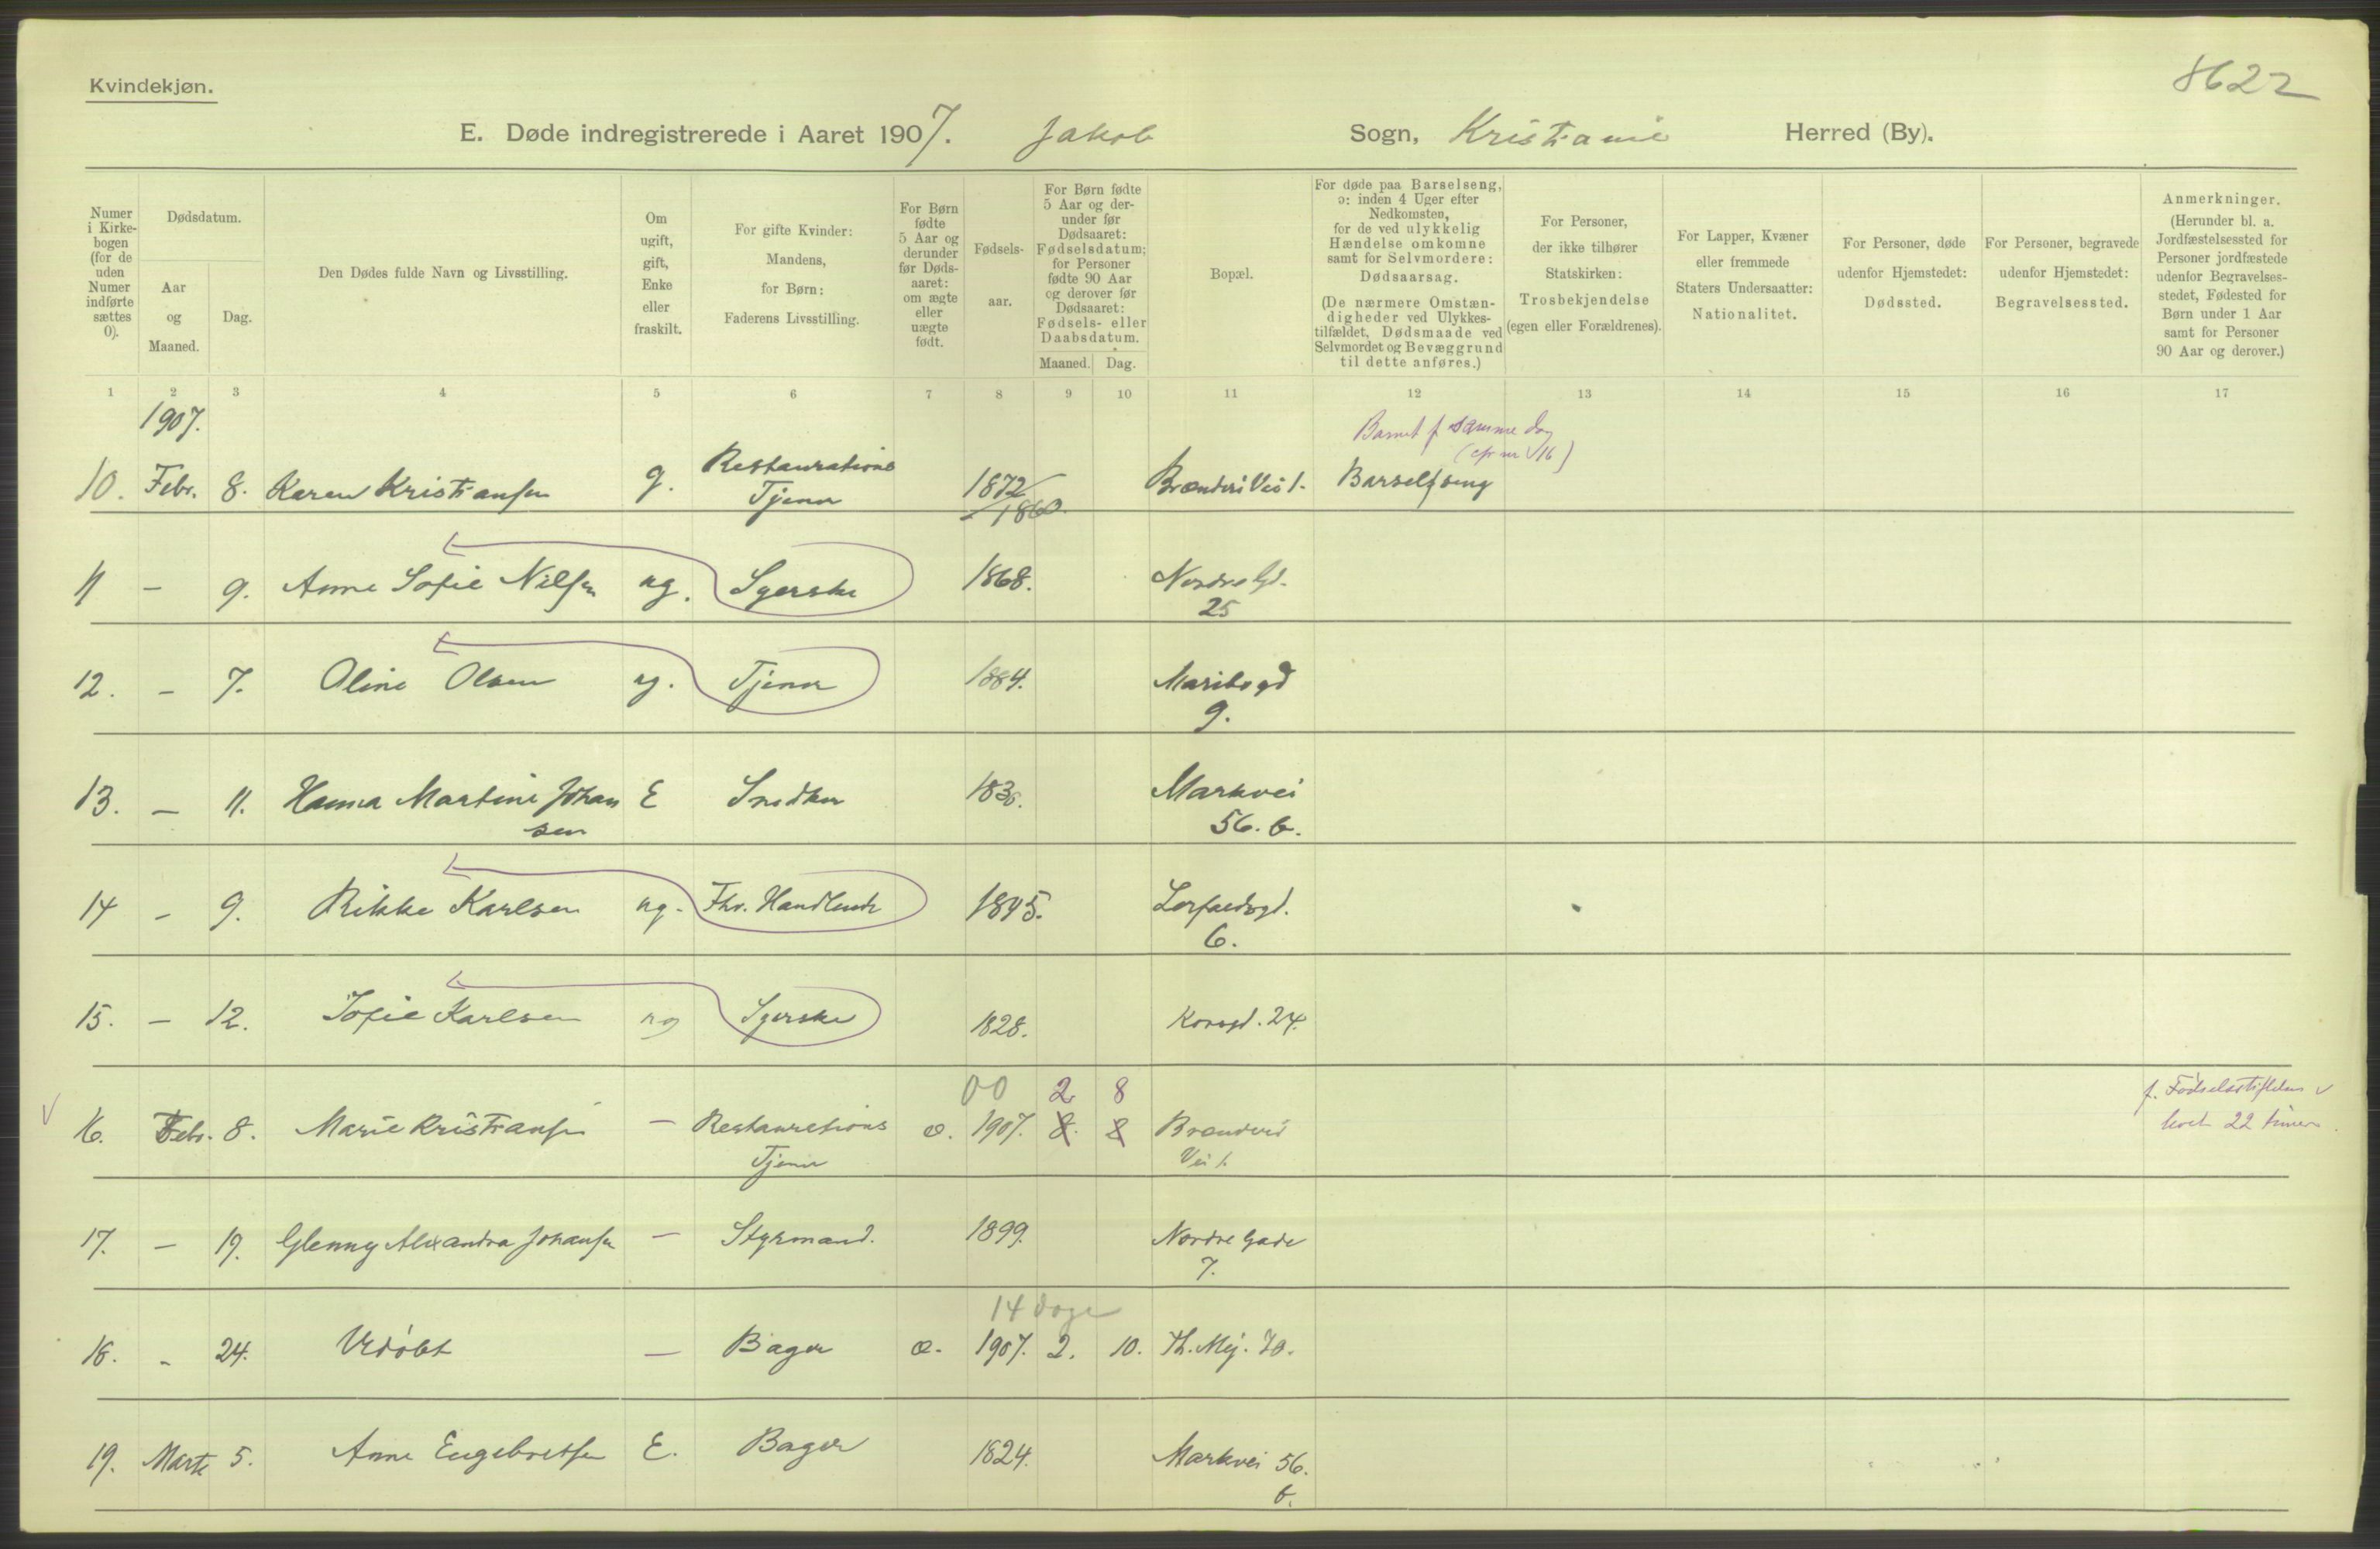 Kvindekjøn.
8622
E. Døde indregistrerede i Aaret 1907. Jakob Sogn, Kristiania Herred (By).
Numer i Kirke-bogen (for de uden Numer indførte sættes 0).
Dødsdatum.
Aar og Maaned.
Dag.
Den Dødes fulde Navn og Livsstilling.
Om ugift, gift, Enke eller fraskilt.
For gifte Kvinder: Mandens, for Børn: Faderens Livsstilling.
For Børn fødte 5 Aar og derunder før Døds-aaret: om ægte eller uægte født.
Fødsels-aar.
For Børn fødte 5 Aar og der-under før Dødsaaret: Fødselsdatum; for Personer fødte 90 Aar og derover før Dødsaaret: Fødsels- eller Daabsdatum.
Maaned. Dag.
Bopæl.
For døde paa Barselseng, ɔ: inden 4 Uger efter Nedkomsten, for de ved ulykkelig Hændelse omkomne samt for Selvmordere: Dødsaarsag.
(De nærmere Omstæn-digheder ved Ulykkes-tilfældet, Dødsmaade ved Selvmordet og Bevæggrund til dette anføres.)
For Personer, der ikke tilhører Statskirken: Trosbekjendelse (egen eller Forældrenes).
For Lapper, Kvæner eller fremmede Staters Undersaatter: Nationalitet.
For Personer, døde udenfor Hjemstedet: Dødssted.
For Personer, begravede udenfor Hjemstedet: Begravelsessted.
Anmerkninger.
(Herunder bl. a. Jordfæstelsessted for Personer jordfæstede udenfor Begravelses-stedet, Fødested for Børn under 1 Aar samt for Personer 90 Aar og derover.)
1 2 3 4 5 6 7 8 9 10 11 12 13 14 15 16 17
1907.
Barnet f samme dag
(cfr nr 16)
10. Febr. 8. Karen Kristiansen g. Restaurations Tjener 1872/1860. Brænderi Vei 1. Barselseng
11 – 9. Anne Sofie Nilsen ug. Syerske 1868. Nordre Gd. 25
12. – 7. Oline Olsen ug. Tjener 1884. Maribogd 9.
13. – 11. Hanna Martine Johansen E Snedker Markvei 56. b.
14 – 9. Rikke Karlsen ug. Fhv. Handlende 1845. 6.
15. – 12. Sofie Karlsen ug Syerske 1828. Korsgd. 24.
00 2 8
16. Febr. 8. Marie Kristiansen – Restaurations Tjener æ. 1907. 8. 8 Brænderi Vei 1. f. Fødselsstiftelsen
levet 22 timer.
17. – 19. Glenny Alexandra Johansen – Styrmand. 1899. Nordre Gade 7.
14 dage
18. - 24. Udøbt – Bager æ. 1907. 2. 10. Th. Mej. 70.
19. Marts 5. Anne Engebretsen E. Bager 1824. Markvei 56. b.